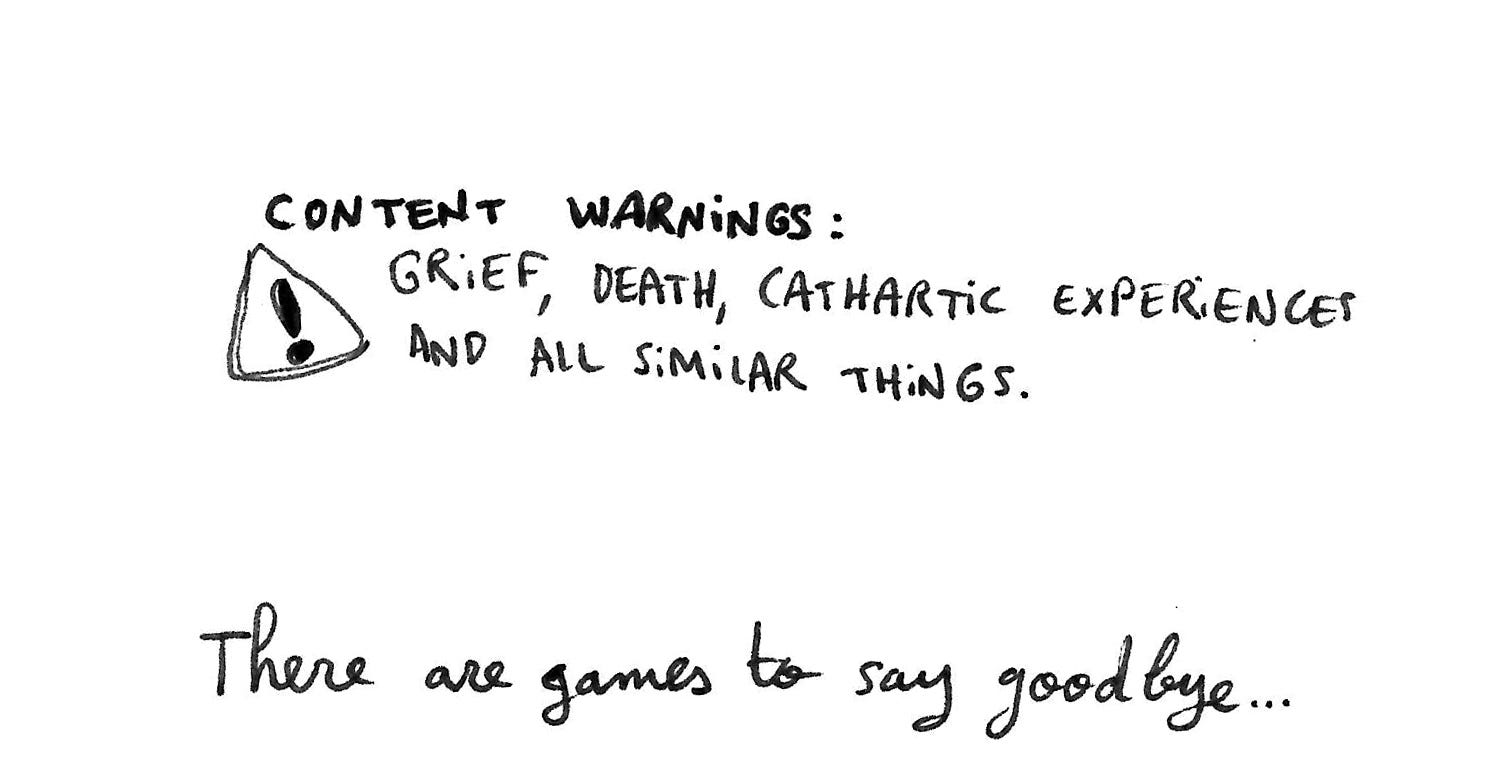 CONTENT WARNiNGS:
GRiEF, DEATH, CATHARTiC EXPERiENCES
AND ALL SiMiLAR THiNGS.
There are games to say goodbye...